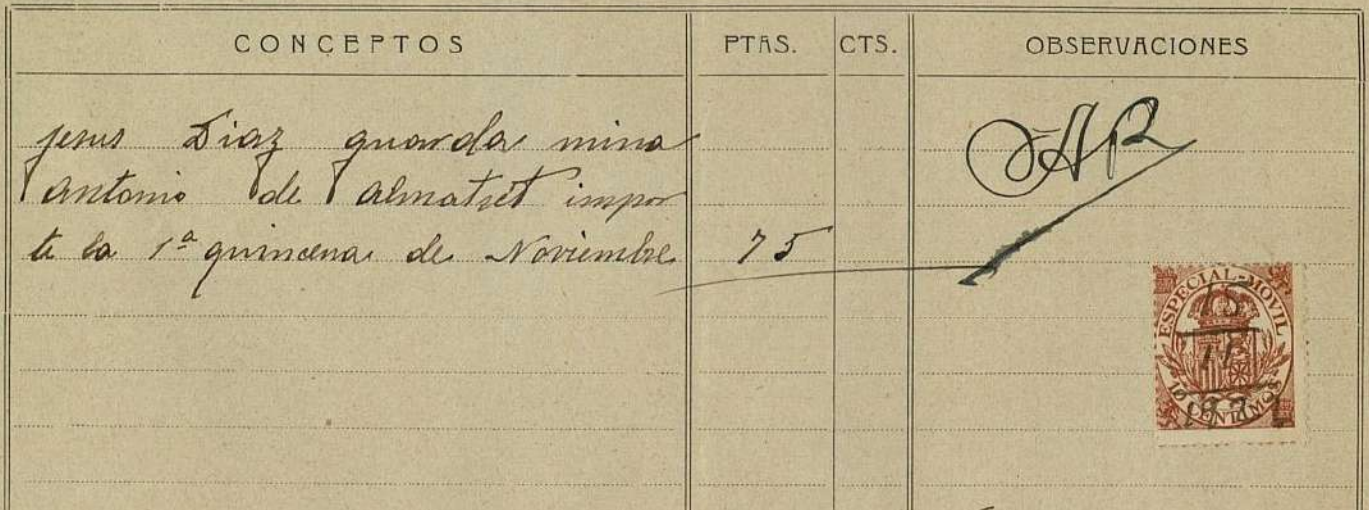 CONCEPTOS PTAS. CTS. OBSERVACIONES
Jesus Diaz guarda mina
Antonio de Almatret impor
te la 1ª quincena de Noviembre 75
ESPECIAL-MOVIL
15
11
10 CENTIMOS